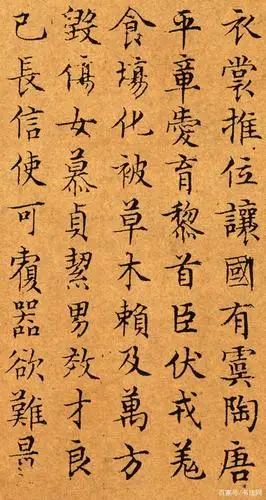 衣裳推位讓國有虞陶唐
平章愛育黎首臣伏戎羌
食場化被草木賴及萬方
毀傷女慕貞絜男效才良
已長信使可覆器欲難量